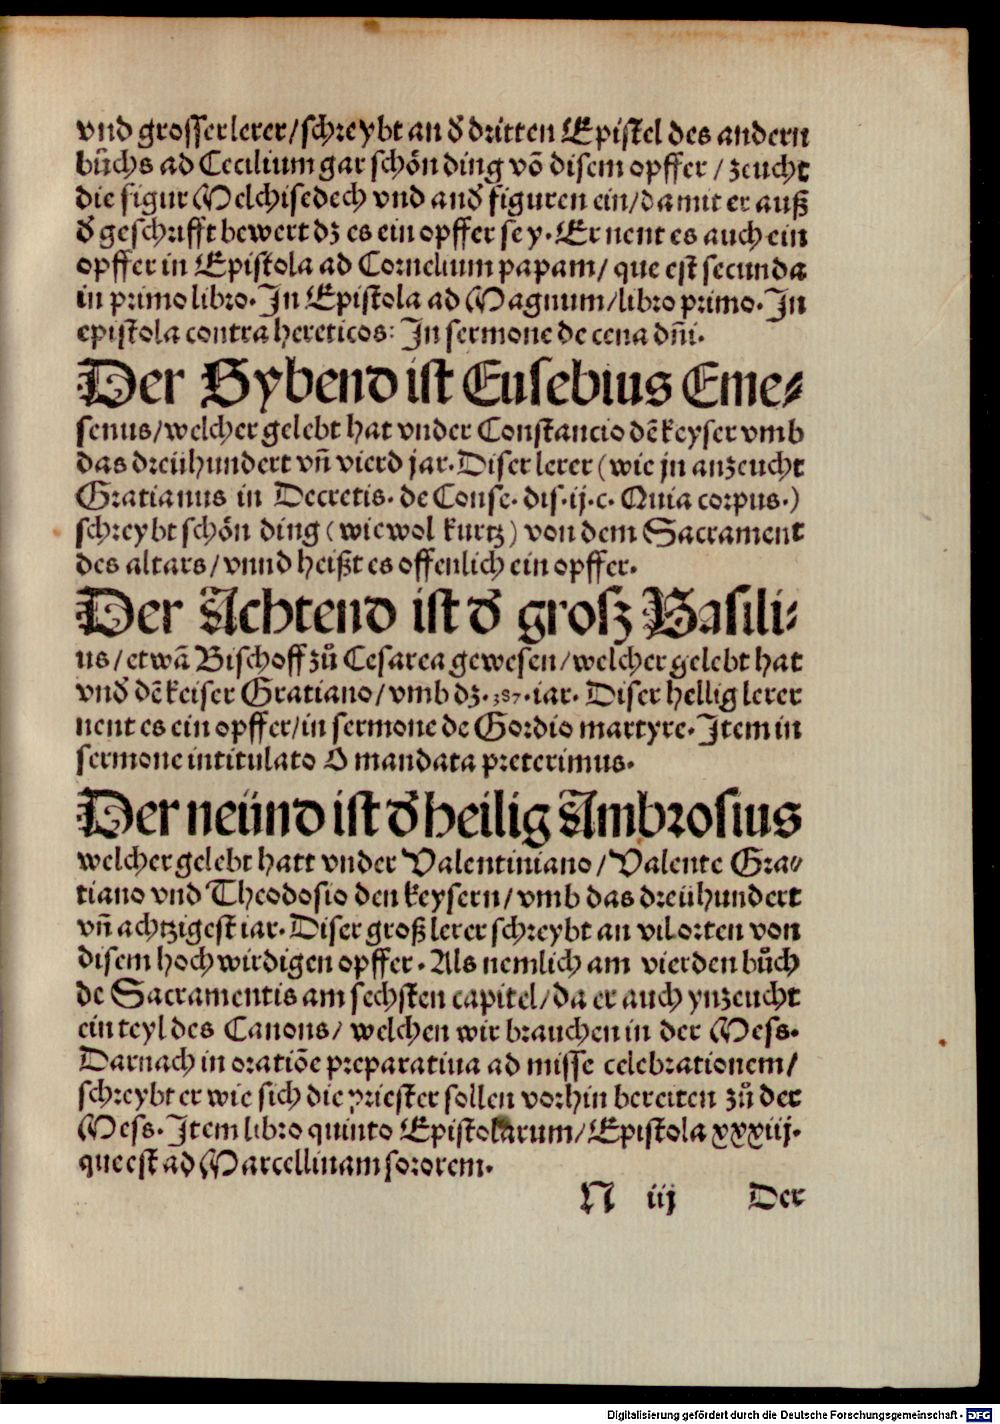 vnd grosser lerer/schreybt an d̕ dritten Epistel des andern
bůchs ad Cecilium gar schön ding võ disem opffer / zeucht
die figur Melchisedech vnd and̕ figuren ein/damit er auß
d̕ geschrifft bewert dz es ein opffer sey. Er nent es auch ein
opffer in Epistola ad Cornelium papam/ que est secunda
in primo libro. In Epistola ad Magnum/libro primo. In
epistola contra hereticos: In sermone de cena dñi.
Der Sybend ist Eusebius Eme⸗
senus/welcher gelebt hat vnder Constancio dẽ keyser vmb
das dreühundert vñ vierd jar. Diser lerer (wie jn anzeucht
Gratianus in Decretis. de Conse. dis. ij. c. Quia corpus.)
schreybt schön ding (wiewol kurtz) von dem Sacrament
des altars/ vnnd heißt es offenlich ein opffer.
Der Achtend ist d̕ grosz Basili⸗
us/etwã Bischoff zů Cesarea gewesen/welcher gelebt hat
vnd̕ dẽ keiser Gratiano/vmb dz .387. iar. Diser hellig lerer
nent es ein opffer/in sermone de Gordio martyre. Item in
sermone intitulato O mandata preterimus.
Der neünd ist d̕ heilig Ambrosius
welcher gelebt hatt vnder Valentiniano/Valente Gra⸗
tiano vnd Theodosio den keysern/vmb das dreühundert
vñ achtzigest iar. Diser groß lerer schreybt an vil orten von
disem hochwirdigen opffer. Als nemlich am vierden bůch
de Sacramentis am sechsten capitel/da er auch ynzeucht
ein teyl des Canons/ welchen wir brauchen in der Mess.
Darnach in oratiõe preparatiua ad misse celebrationem/
schreybt er wie sich die priester sollen vorhin bereiten zů der
Mess. Item libro quinto Epistolarum/Epistola xxxiij.
que est ad Marcellinam sororem.
N iij Der
Digitalisierung gefördert durch die Deutsche Forschungsgemeinschaft - DFG